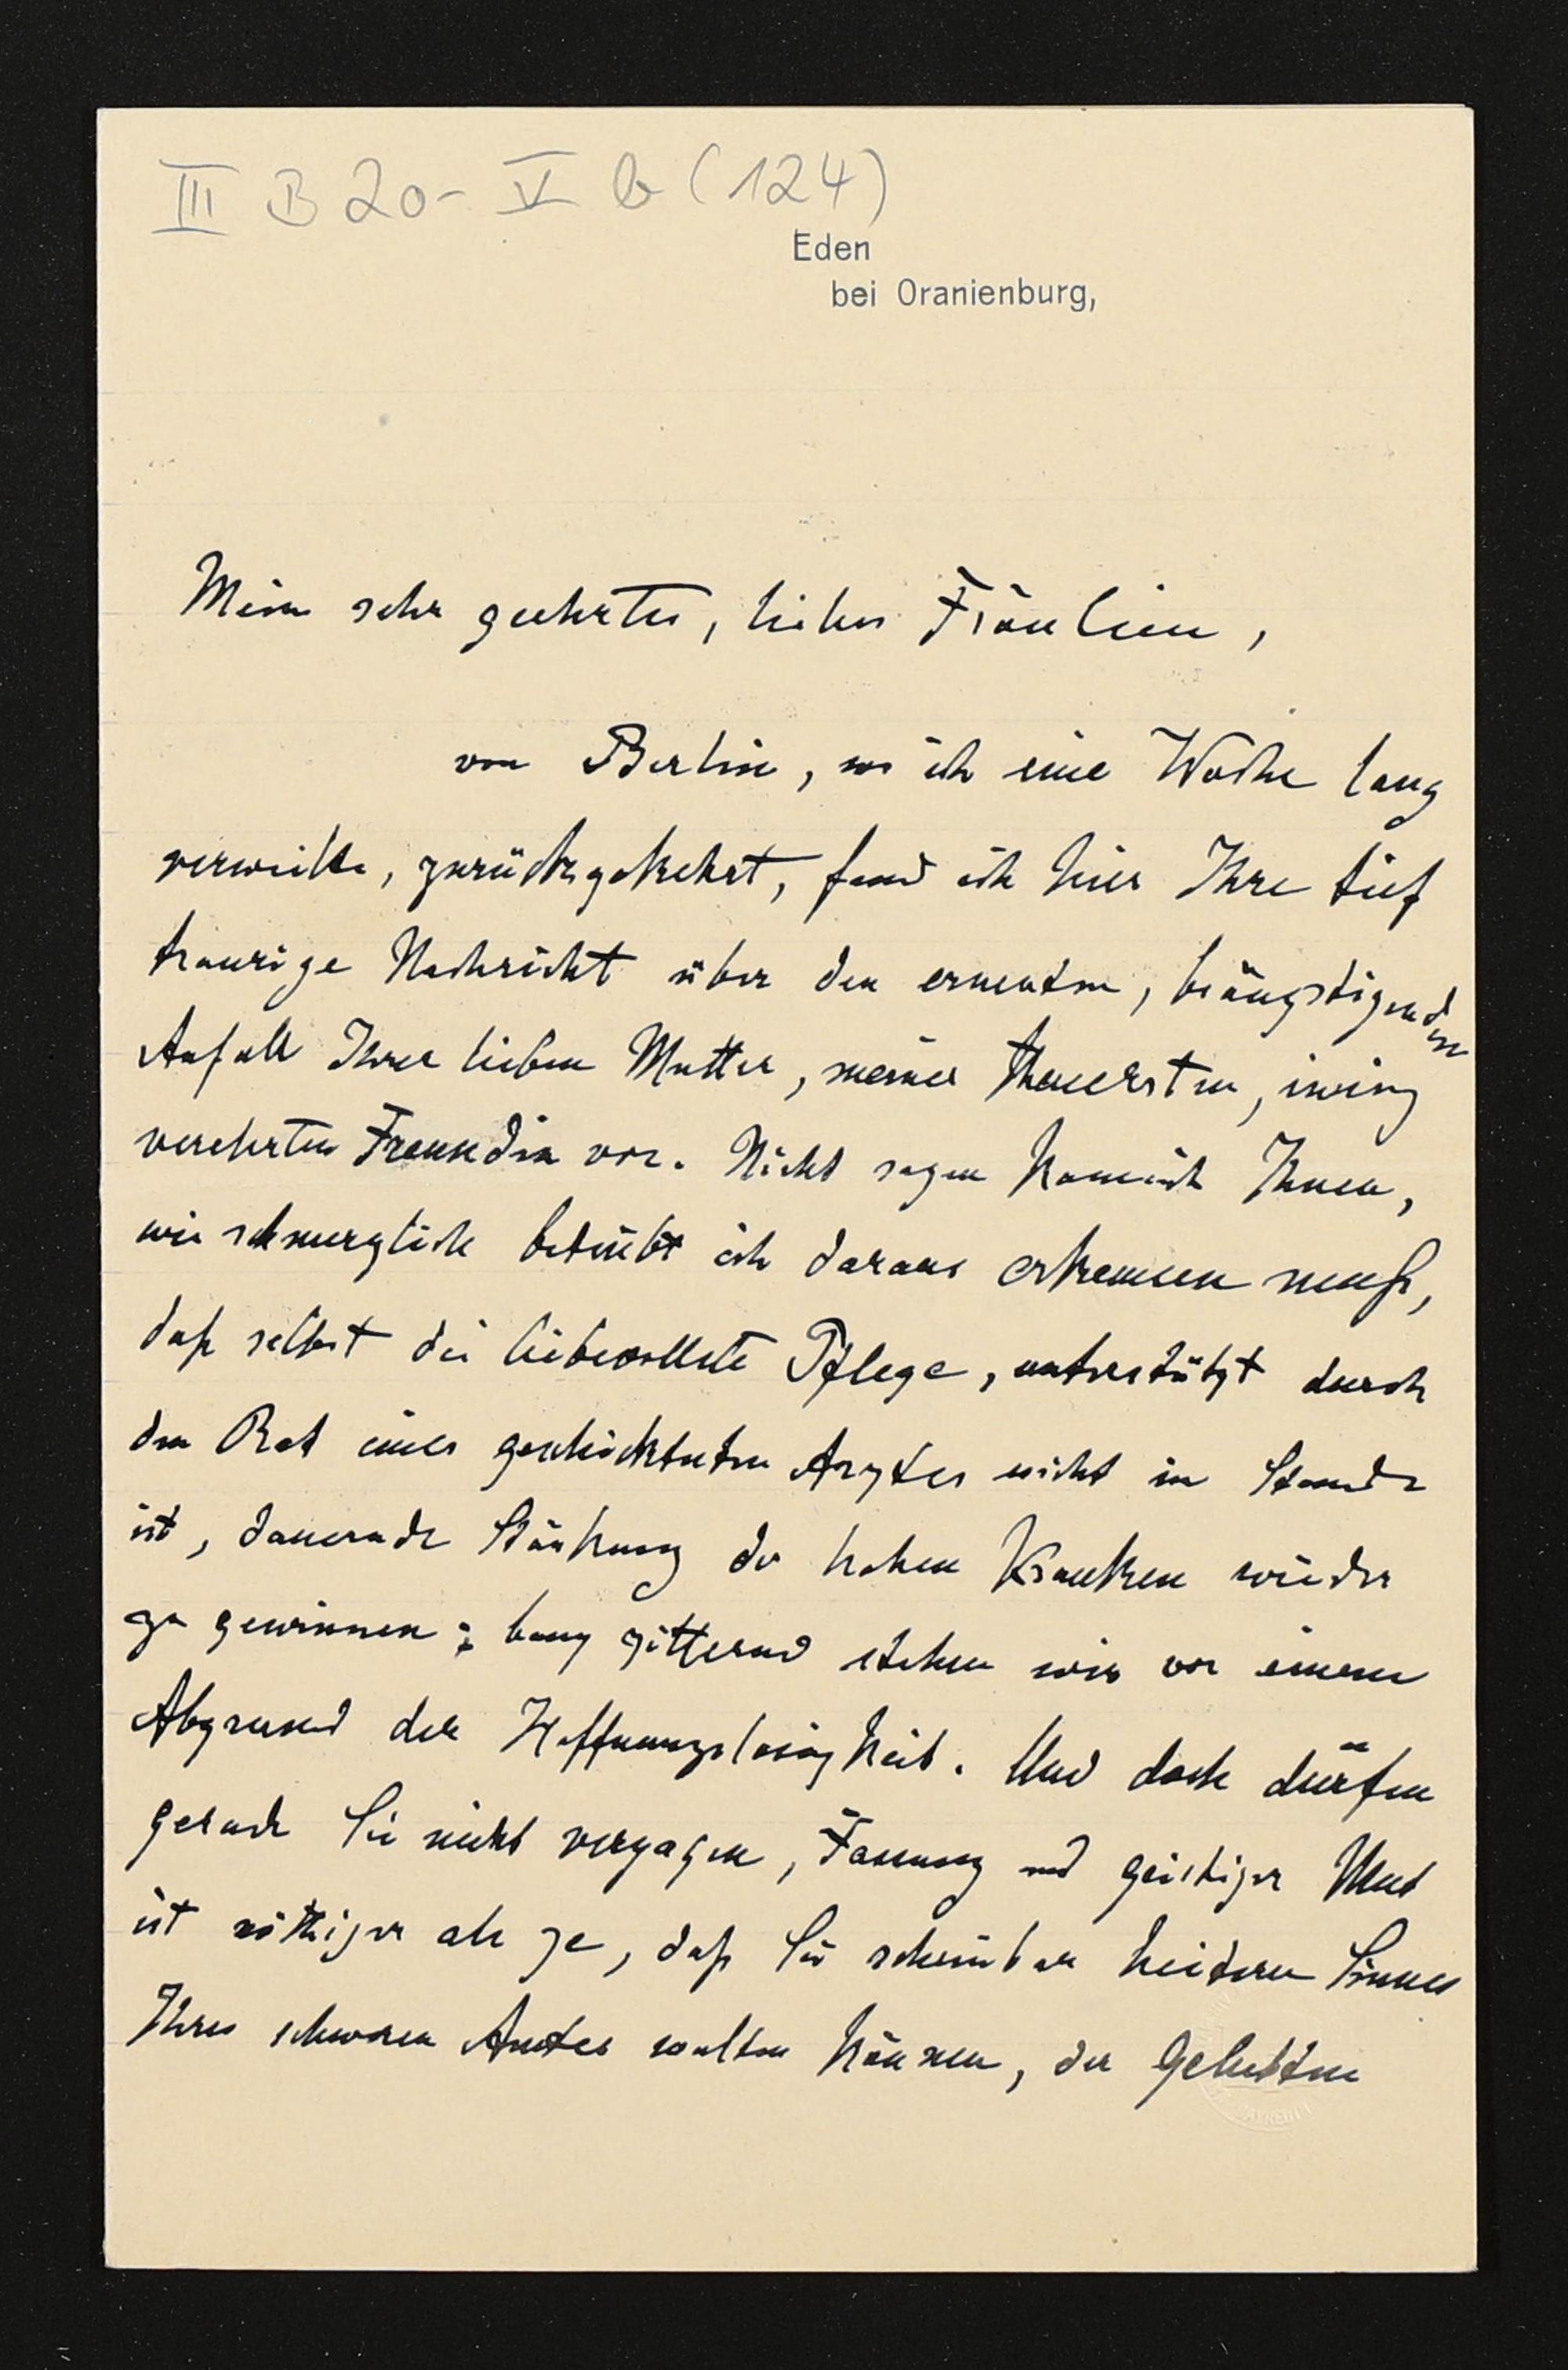 III B 20 - V b (124)
Eden
bei Oranienburg,
Mein sehr geehrtes, liebes Fräulein,
von Berlin, wo ich eine Woche lang
verweilte, zurückgekehrt, fand ich hier Ihre tief
traurige Nachricht über den erneuten, beängstigenden
Anfall Ihrer lieben Mutter, meiner theuersten, innig
verehrten Freundin vor. Nicht sagen kann ich Ihnen,
wie schmerzlich betrübt ich daraus erkennen muß,
daß selbst die liebevollste Pflege, unterstützt durch
den Rat eines geschicktesten Arztes nicht in Stande
ist, dauernde Stärkung der hohen Kranken wieder
zu gewinnen; bang zitternd stehen wir vor einem
Abgrund der Hoffnungslosigkeit. Und doch dürfen
gerade Sie nicht verzagen, Fassung und geistiger Mut
ist nöthiger als je, daß Sie scheinbar heiteren Sinnes
Ihres schweren Amtes walten können, der Geliebten